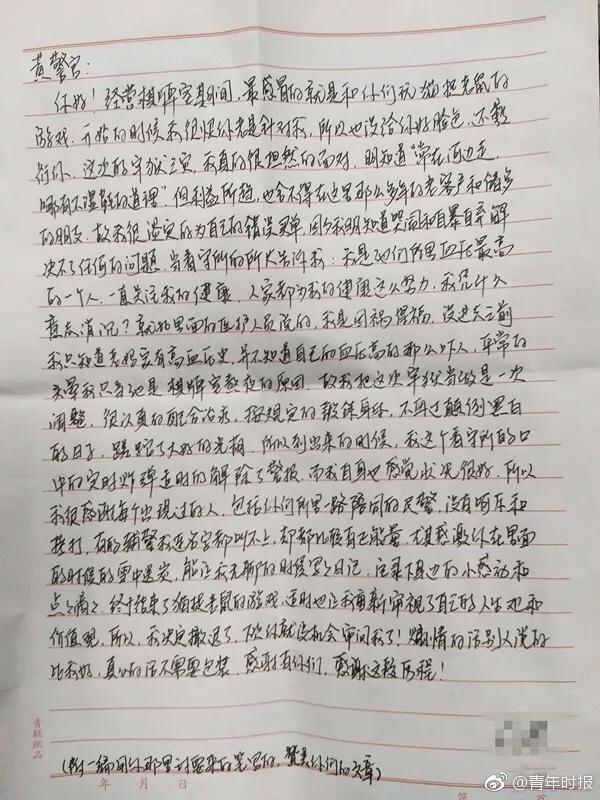 黄警官:
你好!经营棋牌室期间,最感冒的就是和你们玩猫捉老鼠的
游戏,开始的时候我很恨你老是针对我,所以也没给你好脸色,还敷
衍你,这次的牢狱之灾,我真的很坦然的面对,明知道“常在河边走,
哪有不湿鞋的道理”但利益所趋,也舍不得在这里那么多年的老客户和诸多
的朋友,故我很淡定的为自己的错误买单,因为我明知道哭闹和自暴自弃解
决不了任何的问题,当看守所的所长告诉我:我是他们所里血压最高
的一个人,一直关注我的健康,人家都为我的健康这么努力,我凭什么
意志消沉?就如里面的医护人员说的,我是因祸得福,没进去之前
我只知道老妈家有高血压史,并不知道自己的血压高的那么吓人,平常的
我只当他是棋牌室熬夜的原因,故我把这次牢狱当做是一次
调整,很认真的配合治疗,按规定的锻练身体,不再过颠倒黑白
的日子,蹉跎了大好的光阴,所以到出来的时候,我这个看守所的口
中的定时炸弹适时的解除了警报,而我自身也感觉状况很好,所以
我很感谢每个出现过的人,包括你们所里一路陪同的民警,没有喝斥和
挨打,有的辅警我连名字都叫不上,却都比较有正能量,尤其感激你在里面
的时候的雪中送炭,能让我无聊的时候写写日记,记录下身边的小感动和
点点滴滴,终于结束了猫捉老鼠的游戏,适时也让我重新审视了自己的人生观和
价值观,所以,我决定撤退了,估你就没机会审问我了!煽情的话别人说的
比我好,真心的话不需要包装,感谢有你们,感谢这段历程!
(附一篇用你那里讨要来的笔写的,赞美你们的文章)
青联纸品
年 月 日
第 页
@青年时报